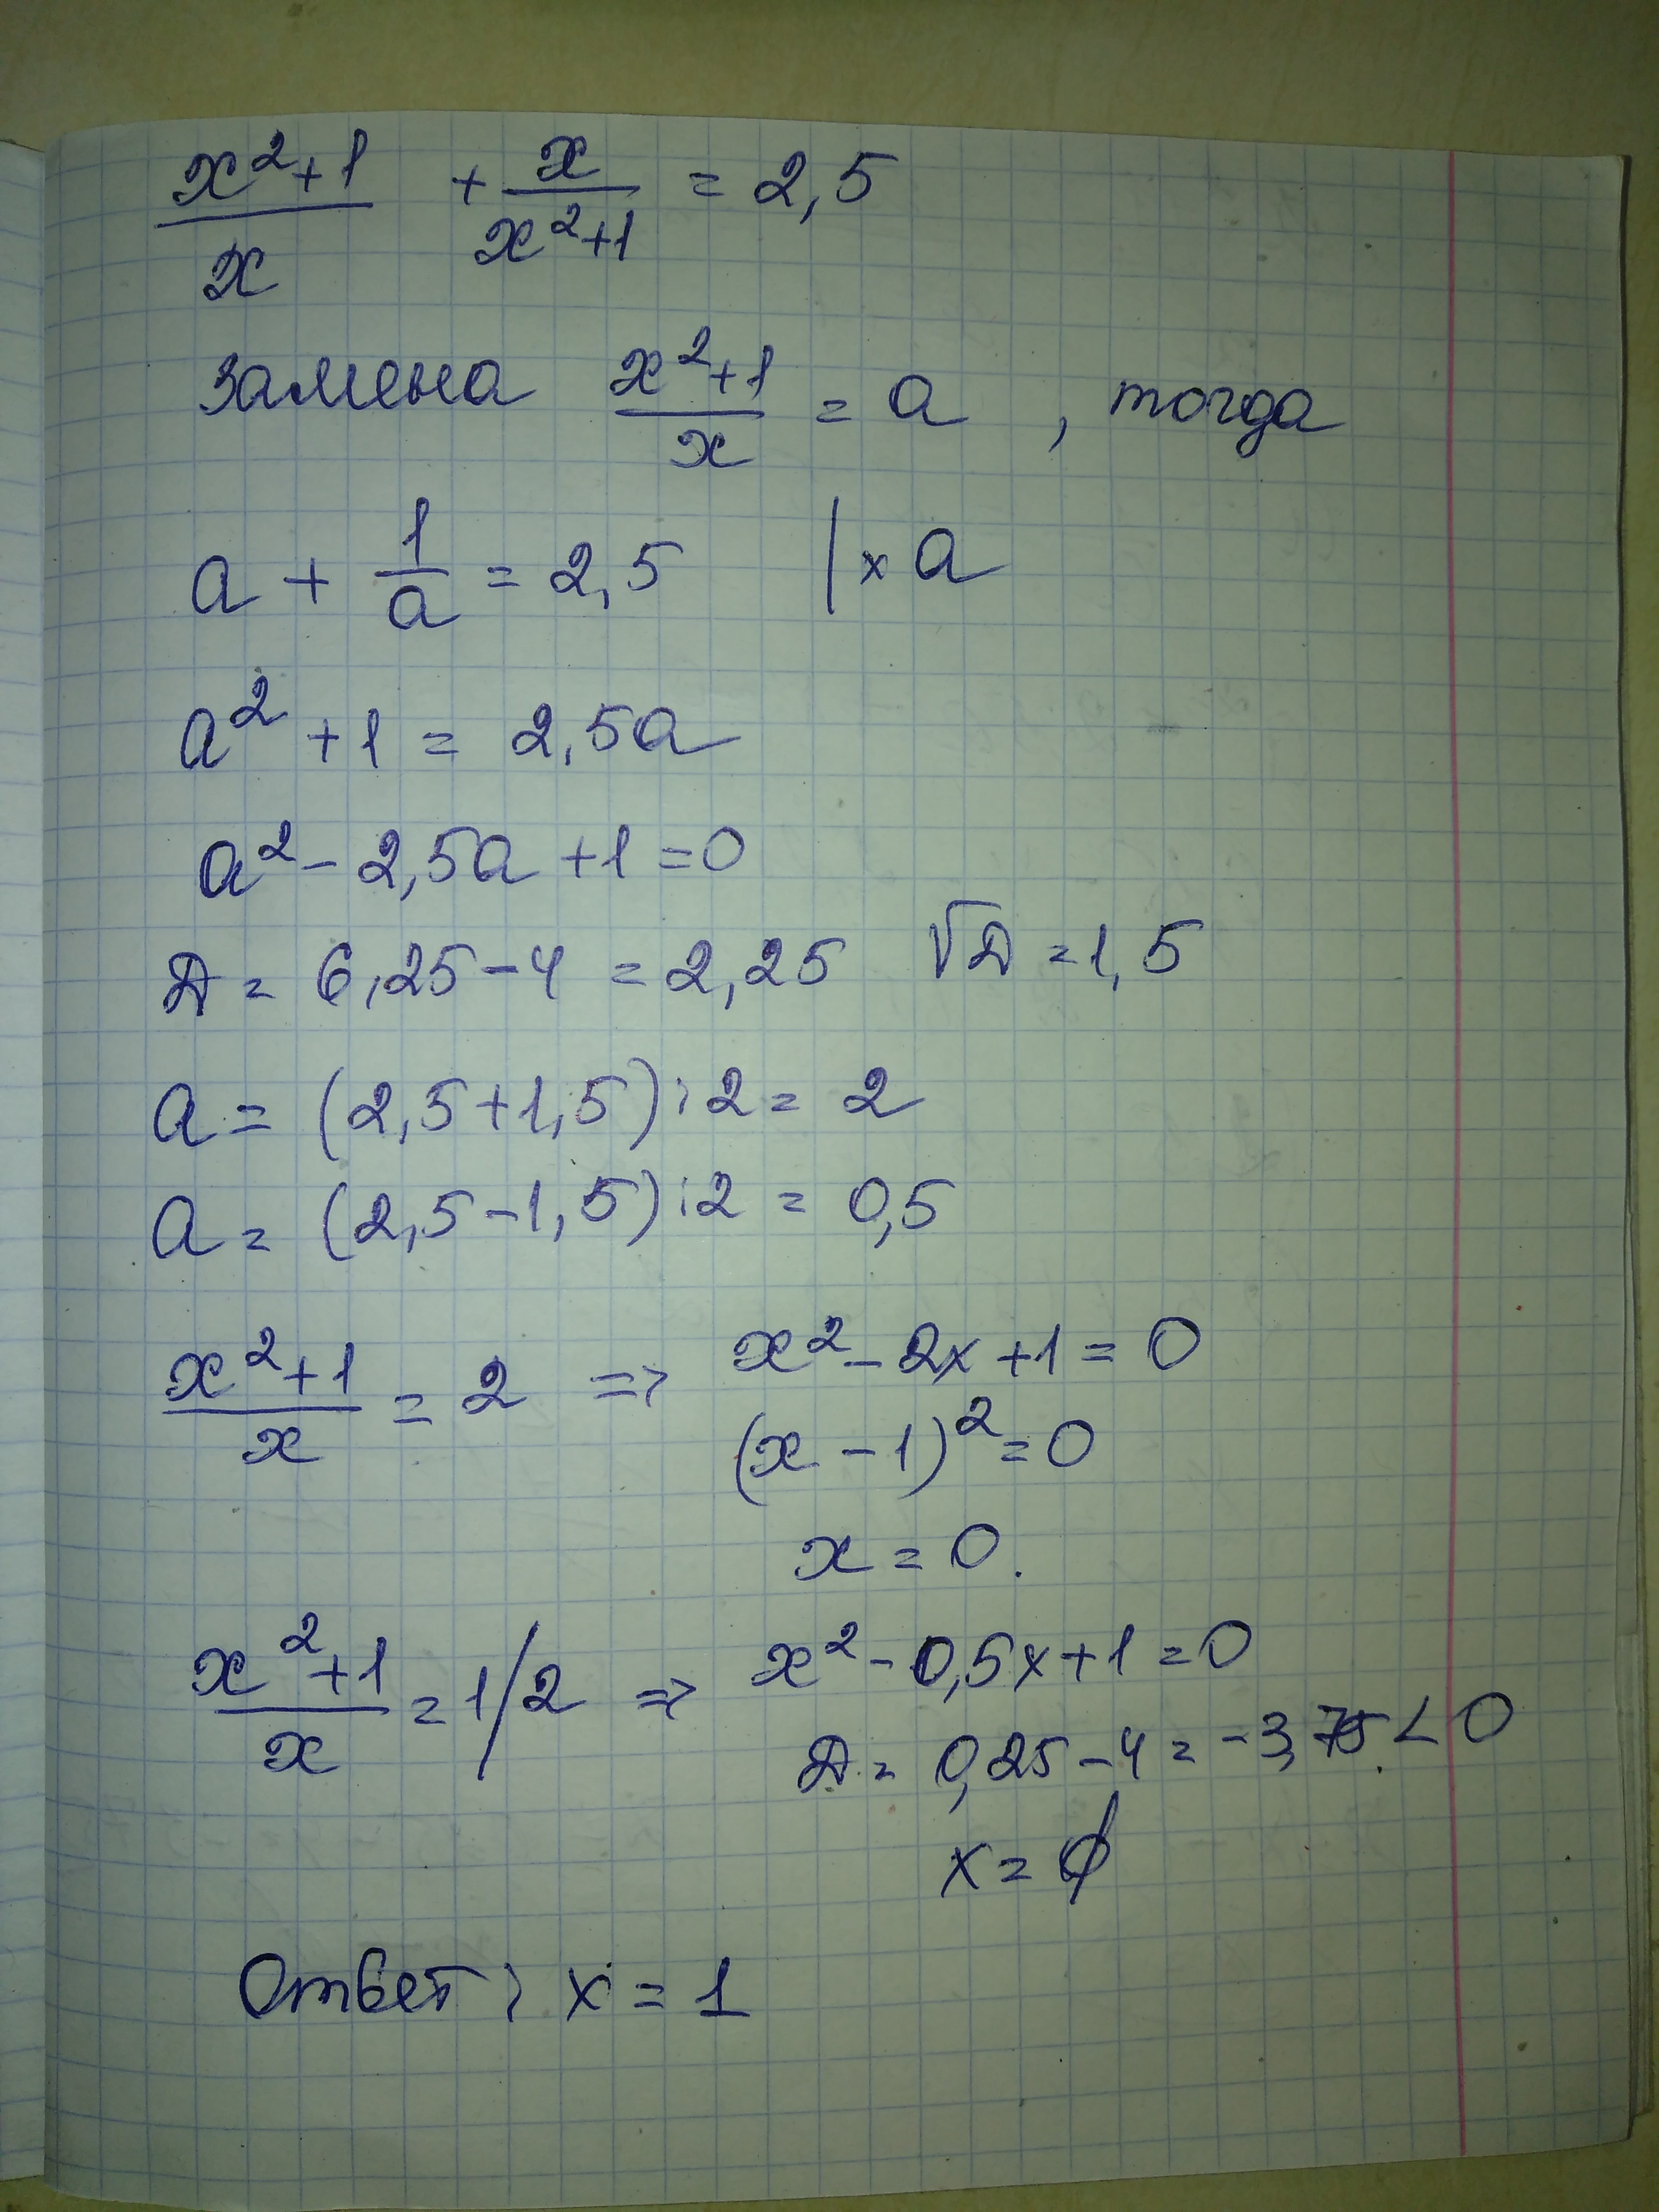 (x²+1)/x + x/(x²+1) = 2,5
замена (x²+1)/x = a , тогда
a + 1/a = 2,5 | × a
a² + 1 = 2,5a
a² - 2,5a + 1 = 0
Д = 6,25 - 4 = 2,25 √Д = 1,5
a = (2,5 + 1,5) : 2 = 2
a = (2,5 - 1,5) : 2 = 0,5
(x²+1)/x = 2 => x² - 2x + 1 = 0
(x - 1)² = 0
x = 0.
(x²+1)/x = 1/2 => x² - 0,5x + 1 = 0
Д = 0,25 - 4 = -3,75 < 0
x = ∅
Ответ: x = 1